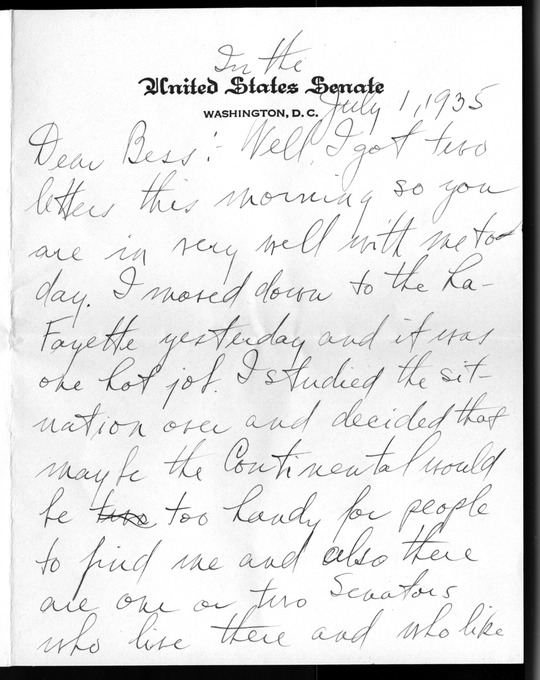 In the
United States Senate
WASHINGTON, D. C.
July 1, 1935
Dear Bess:- Well, I got two
letters this morning so you
are in very well with me to-
day. I moved down to the La-
Fayette yesterday and it was
one hot job. I studied the sit-
uation over and decided that
maybe the Continental would
be two too handy for people
to find me and also there
are one or two Senators
who live there and who like